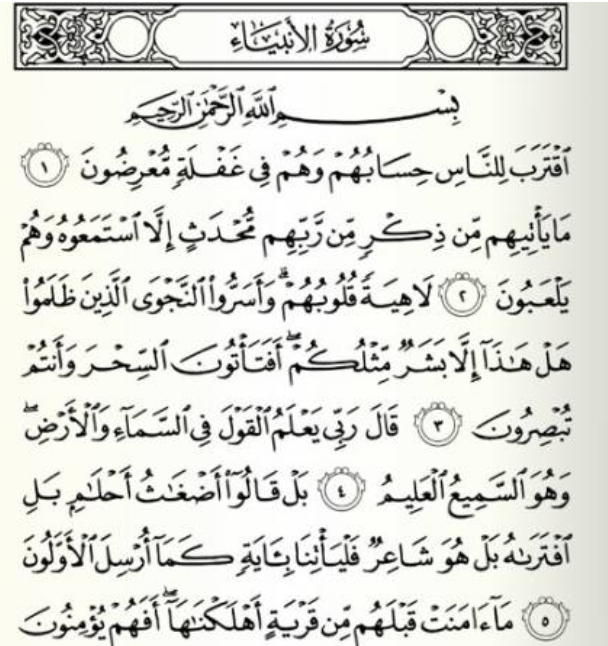 سُورَةُ الأَنْبِيَاءِ
بِسْمِ ٱللَّهِ ٱلرَّحْمَٰنِ ٱلرَّحِيمِ
ٱقْتَرَبَ لِلنَّاسِ حِسَابُهُمْ وَهُمْ فِى غَفْلَةٍ مُّعْرِضُونَ ١
مَا يَأْتِيهِم مِّن ذِكْرٍ مِّن رَّبِّهِم مُّحْدَثٍ إِلَّا ٱسْتَمَعُوهُ وَهُمْ
يَلْعَبُونَ ٢ لَاهِيَةً قُلُوبُهُمْ ۗ وَأَسَرُّوا۟ ٱلنَّجْوَى ٱلَّذِينَ ظَلَمُوا۟
هَلْ هَٰذَآ إِلَّا بَشَرٌ مِّثْلُكُمْ ۖ أَفَتَأْتُونَ ٱلسِّحْرَ وَأَنتُمْ
تُبْصِرُونَ ٣ قَالَ رَبِّى يَعْلَمُ ٱلْقَوْلَ فِى ٱلسَّمَآءِ وَٱلْأَرْضِ ۖ
وَهُوَ ٱلسَّمِيعُ ٱلْعَلِيمُ ٤ بَلْ قَالُوٓا۟ أَضْغَٰثُ أَحْلَٰمٍۭ بَلِ
ٱفْتَرَىٰهُ بَلْ هُوَ شَاعِرٌ فَلْيَأْتِنَا بِـَٔايَةٍ كَمَآ أُرْسِلَ ٱلْأَوَّلُونَ
٥ مَآ ءَامَنَتْ قَبْلَهُم مِّن قَرْيَةٍ أَهْلَكْنَٰهَآ ۖ أَفَهُمْ يُؤْمِنُونَ